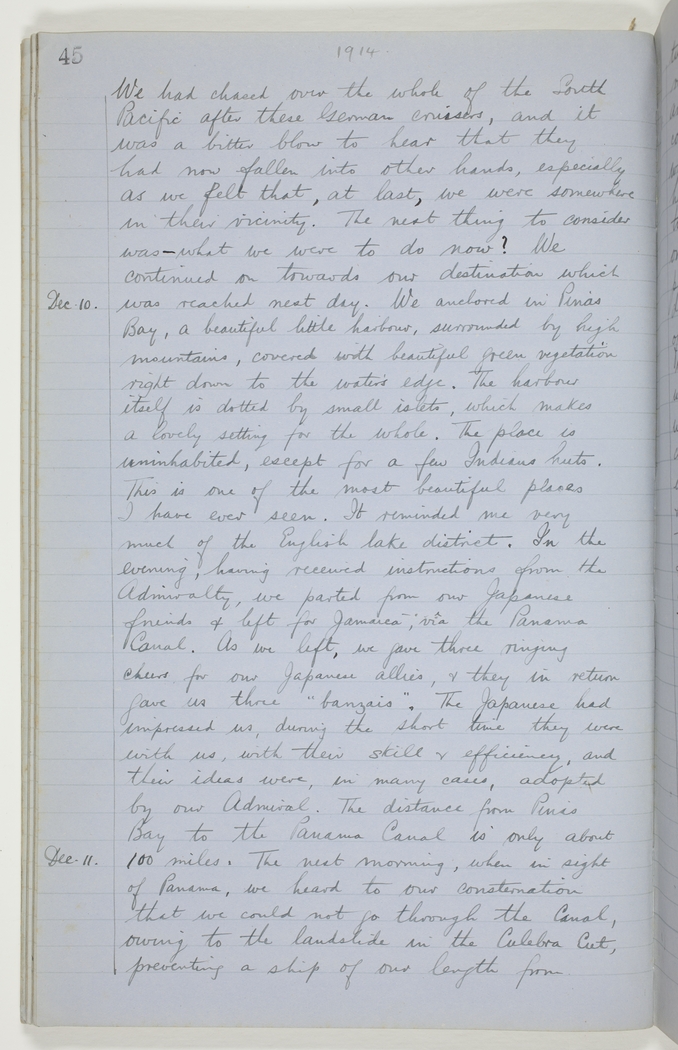 45
1914.
We had chased over the whole of the South
Pacific after these German cruisers, and it
was a bitter blow to hear that they
had now fallen into other hands, especially
as we felt that, at last, we were somewhere
in their vicinity. The next thing to consider
was – what we were to do now? We
continued on towards our destination which
Dec. 10. was reached next day. We anchored in Pinas
Bay, a beautiful little harbour, surrounded by high
mountains, covered with beautiful green vegetation
right down to the water's edge. The harbour
itself is dotted by small islets, which makes
a lovely setting for the whole. The place is
uninhabited, except for a few Indians huts.
This is one of the most beautiful places
I have ever seen. It reminded me very
much of the English lake district. In the
evening, having received instructions from the
Admiralty, we parted from our Japanese
friends & left for Jamaica, via the Panama
Canal. As we left, we gave three ringing
cheers for our Japanese allies, & they in return
gave us three "banzais". The Japanese had
impressed us, during the short time they were
with us, with their skill & efficiency, and
their ideas were, in many cases, adopted
by our Admiral. The distance from Pinas
Bay to the Panama Canal is only about
Dec. 11. 100 miles. The next morning, when in sight
of Panama, we heard to our consternation
that we could not go through the Canal,
owing to the landslide in the Culebra Cut,
preventing a ship of our length from